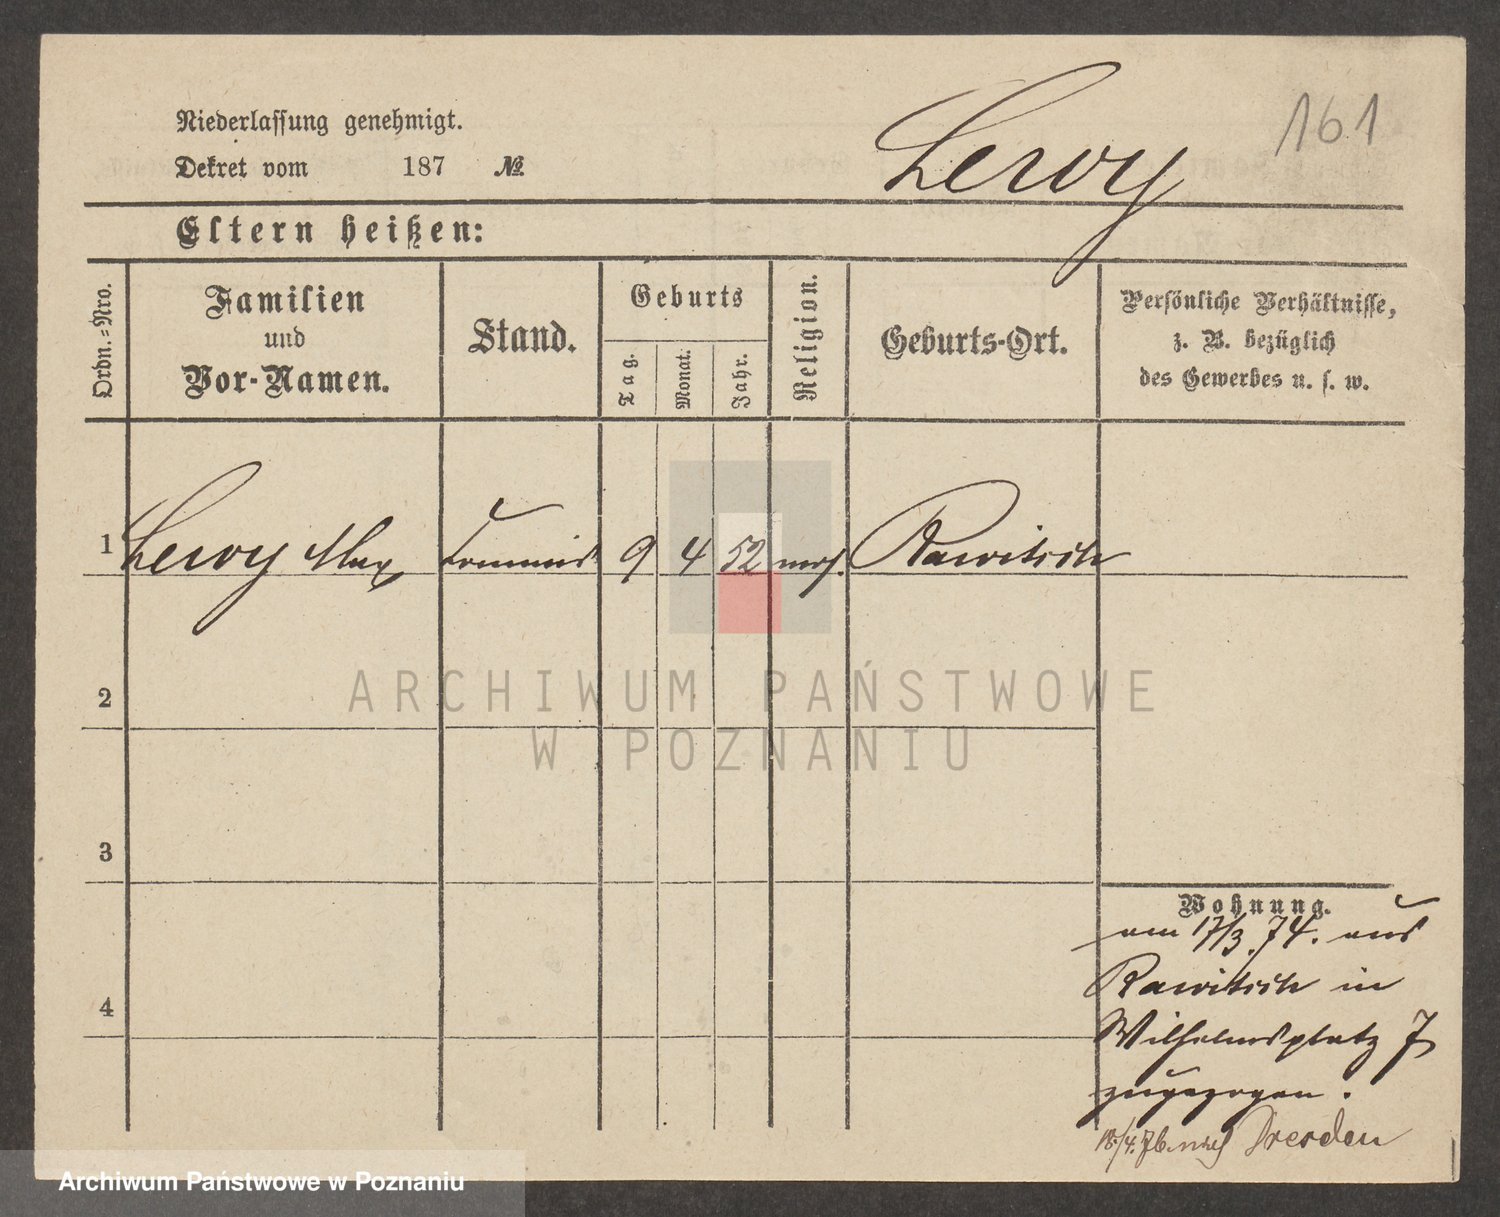 161
Leroy
Niederlassung genehmigt.
Dekret vom 187 №
Eltern heißen:
Ordn.-Nro.
Familien
und
Vor-Namen.
Stand.
Geburts
Tag.
Monat.
Jahr.
Religion.
Geburts-Ort.
Persönliche Verhältnisse,
z. B. bezüglich
des Gewerbes u. s. w.
1 Leroy Max Commis 9 4 52 mos. Rawitsch
2
3
4
Wohnung.
am 17/3. 74. aus
Rawitsch in
Wilhelmsplatz 7
zugezogen.
18/4. 76 nach Dresden
ARCHIWUM PAŃSTWOWE
W POZNANIU
Archiwum Państwowe w Poznaniu